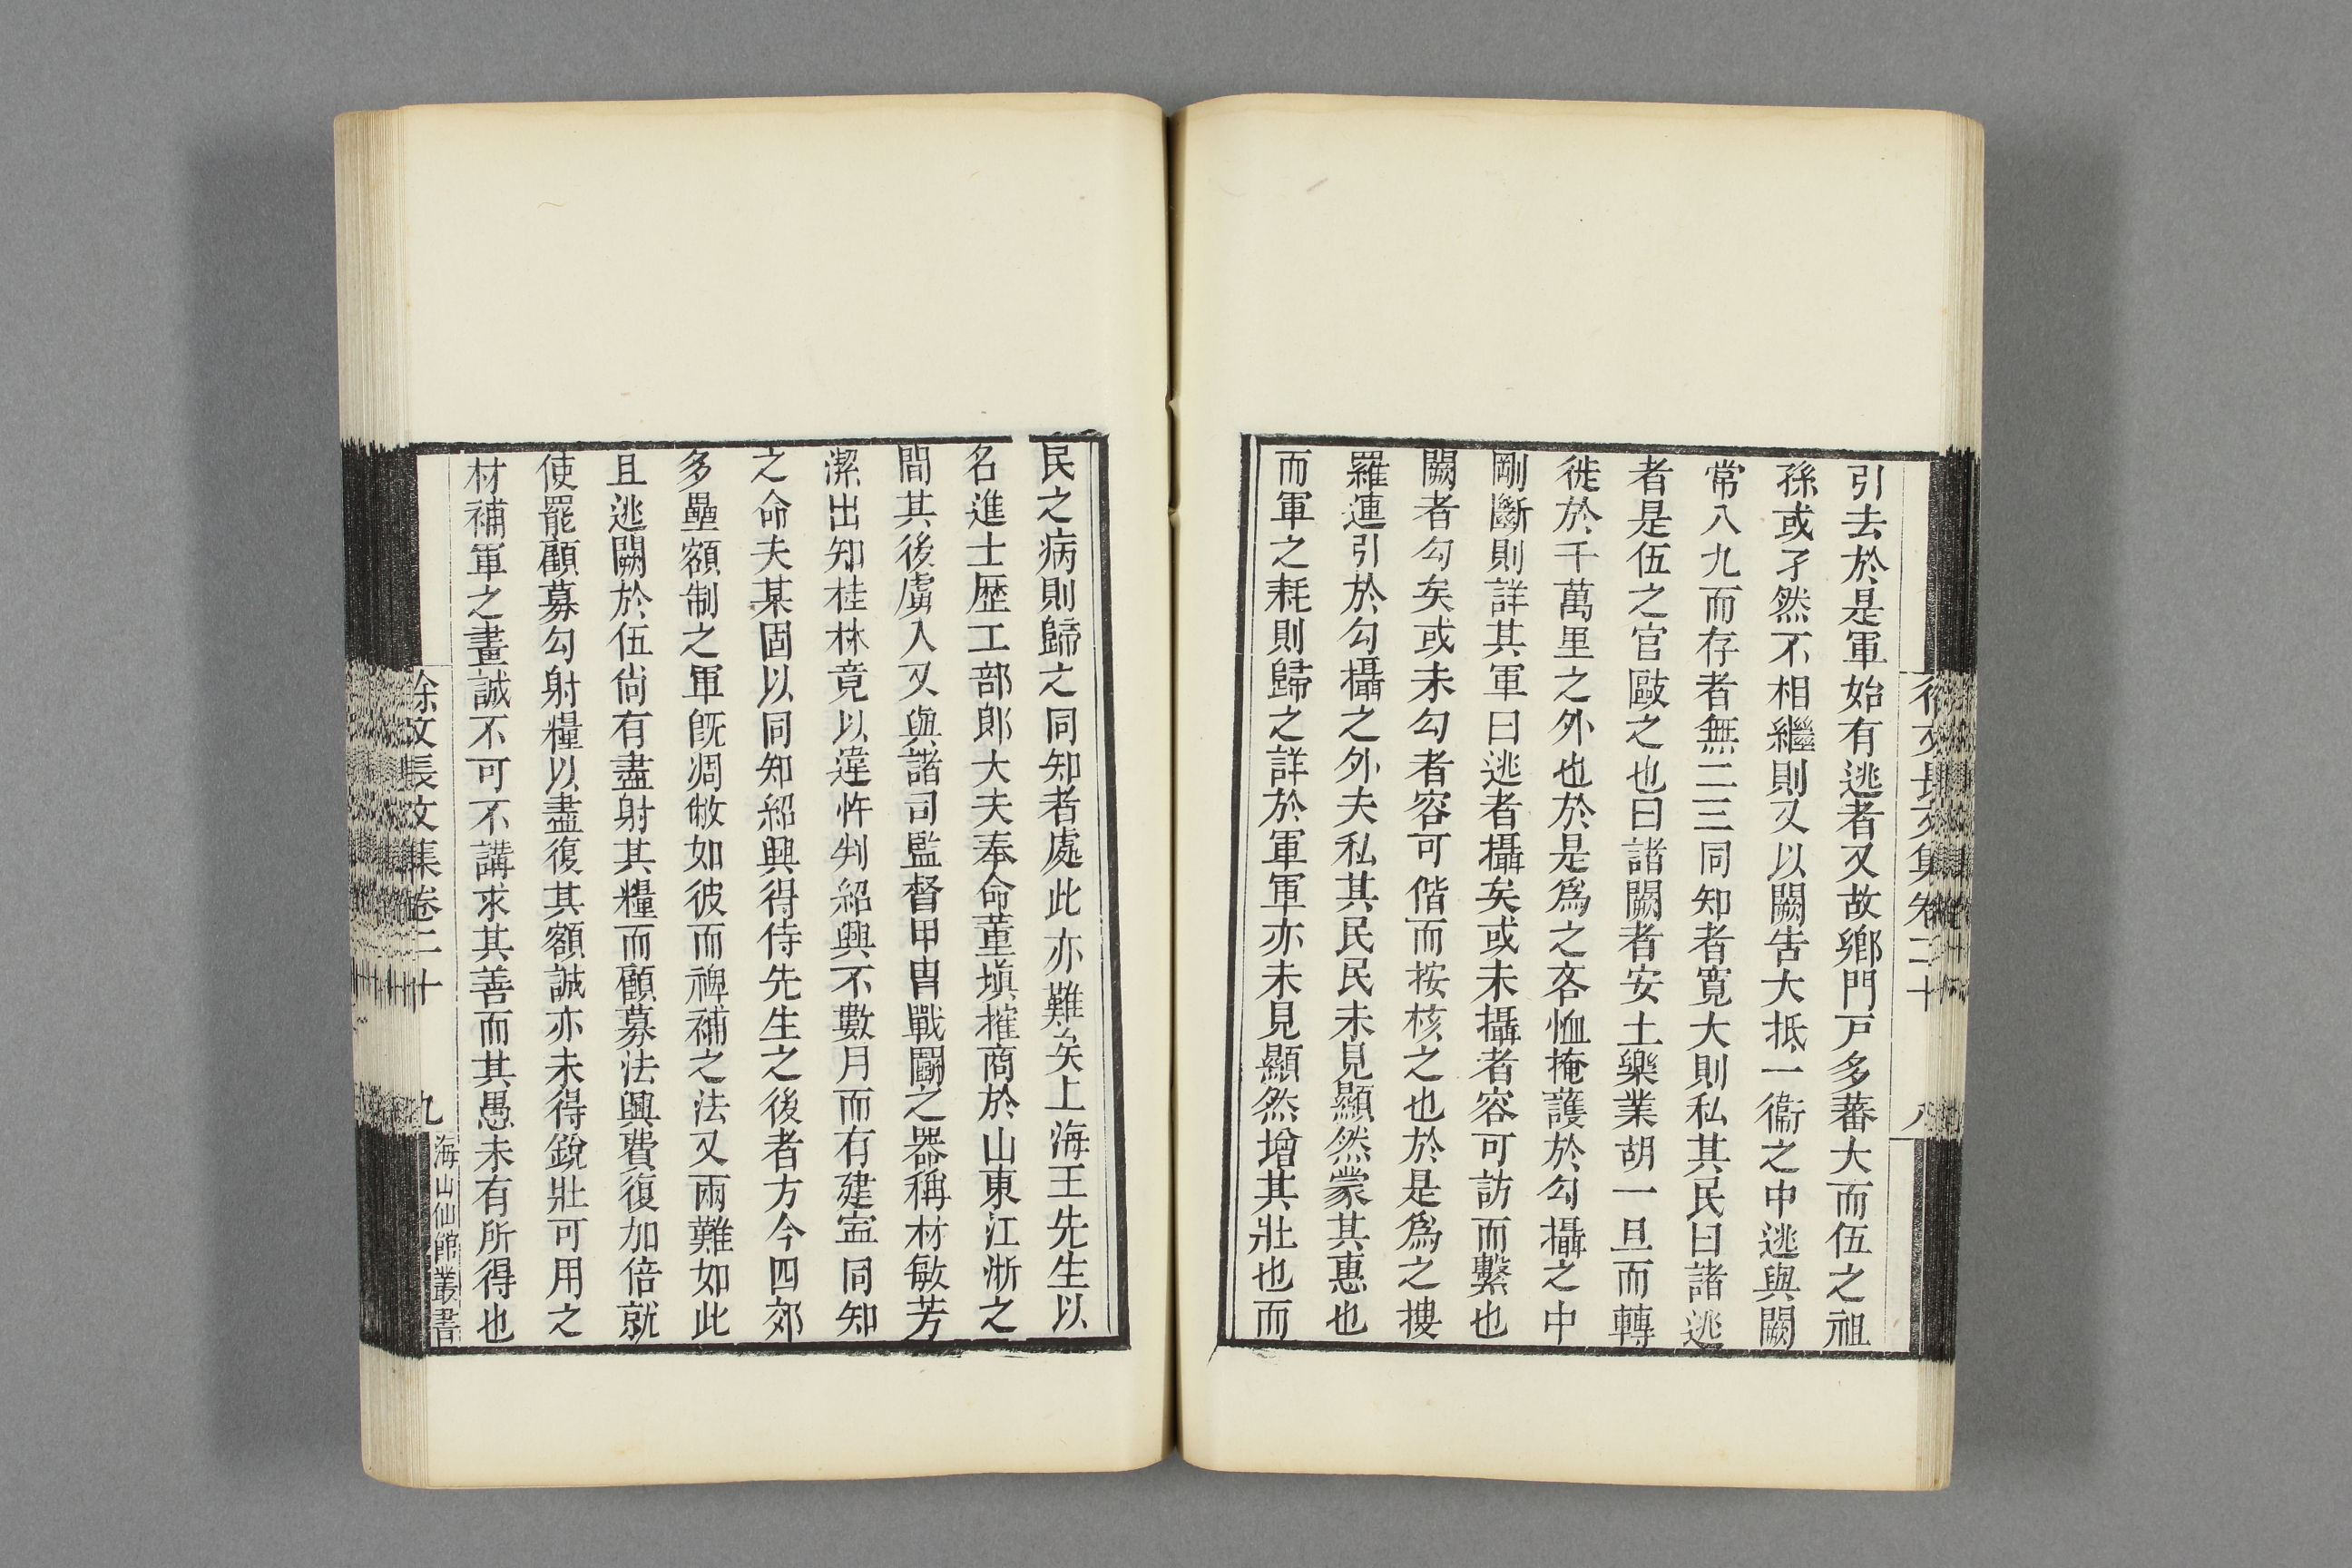 引去於是軍始有逃者又故鄉門戸多蕃大而伍之祖
孫或孑然不相繼則又以闕吿大抵一衞之中逃與闕
常八九而存者無二三同知者寛大則私其民曰諸逃
者是伍之官敺之也曰諸闕者安土樂業胡一旦而轉
徙於千萬里之外也於是爲之吝恤掩護於勾攝之中
剛斷則詳其軍曰逃者攝矣或未攝者容可訪而繫也
闕者勾矣或未勾者容可偕而按核之也於是爲之摟
羅連引於勾攝之外夫私其民民未見顯然蒙其惠也
而軍之耗則歸之詳於軍軍亦未見顯然增其壯也而
徐文長文集卷二十
八
民之病則歸之同知者處此亦難矣上海王先生以
名進士歷工部郎大夫奉命董塡搉商於山東江浙之
間其後虜入又與諸司監督甲冑戰鬭之器稱材敏芳
潔出知桂林竟以違忤判紹興不數月而有建寍同知
之命夫某固以同知紹興得侍先生之後者方今四郊
多壘額制之軍旣凋敝如彼而禆補之法又兩難如此
且逃闕於伍尙有盡射其糧而顧募法興費復加倍就
使罷顧募勾射糧以盡復其額誠亦未得銳壯可用之
材補軍之畫誠不可不講求其善而其愚未有所得也
徐文長文集卷二十
九
海山仙館叢書